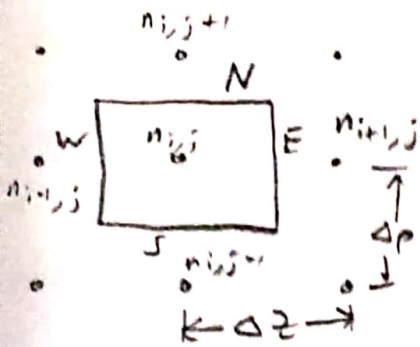 n_{i,j+1}
N
W n_{i,j} E n_{i+1,j}
n_{i-1,j}
Δρ
S n_{i,j-1}
Δz